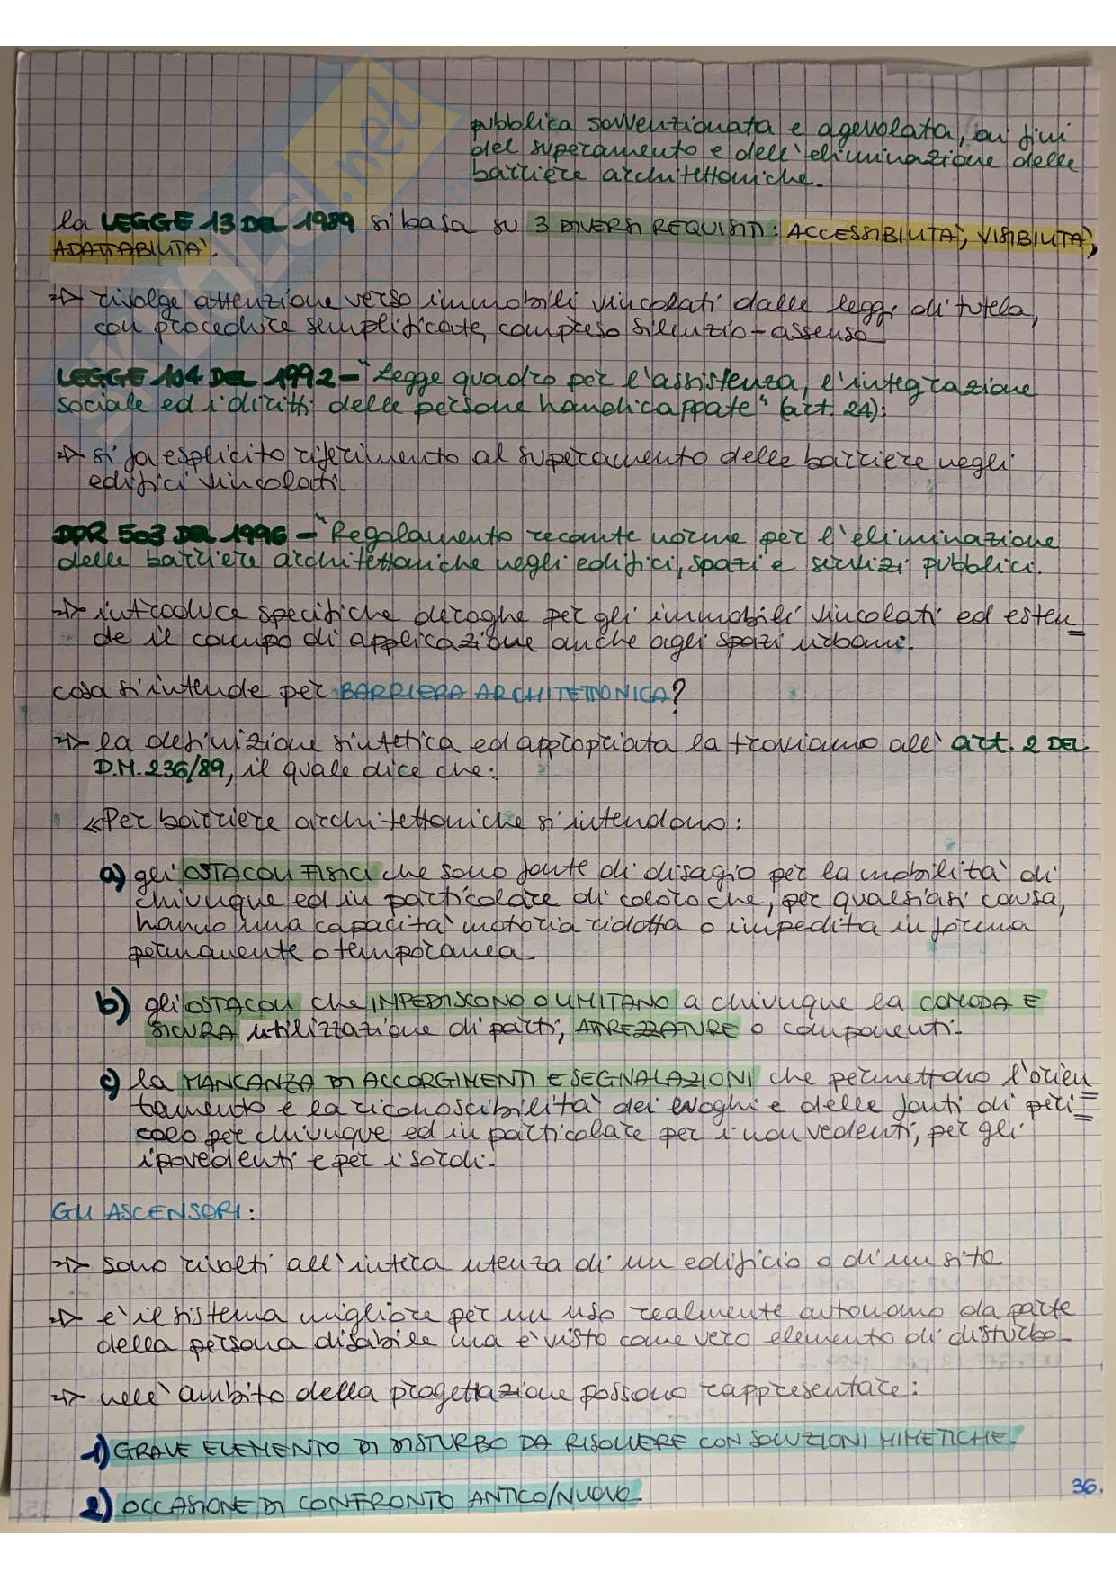 pubblica sovvenzionata e agevolata, ai fini
del superamento e dell'eliminazione delle
barriere architettoniche.
la LEGGE 13 DEL 1989 si basa su 3 DIVERSI REQUISITI: ACCESSIBILITÀ, VISIBILITÀ,
ADATTABILITÀ.
→ rivolge attenzione verso immobili vincolati dalle leggi di tutela,
con procedure semplificate, compreso silenzio-assenso
LEGGE 104 DEL 1992 - "Legge quadro per l'assistenza, l'integrazione
sociale ed i diritti delle persone handicappate" (art. 24):
→ si fa esplicito riferimento al superamento delle barriere negli
edifici vincolati.
DPR 503 DEL 1996 - "Regolamento recante norme per l'eliminazione
delle barriere architettoniche negli edifici, spazi e servizi pubblici.
→ introduce specifiche deroghe per gli immobili vincolati ed esten_
de il campo di applicazione anche agli spazi urbani.
cosa si intende per BARRIERA ARCHITETTONICA?
→ la definizione sintetica ed appropriata la troviamo all'art. 2 DEL
D.M. 236/89, il quale dice che:
«Per barriere architettoniche si intendono:
a) gli OSTACOLI FISICI che sono fonte di disagio per la mobilità di
chiunque ed in particolare di coloro che, per qualsiasi causa,
hanno una capacità motoria ridotta o impedita in forma
permanente o temporanea
b) gli OSTACOLI che IMPEDISCONO O LIMITANO a chiunque la COMODA E
SICURA utilizzazione di parti, ATTREZZATURE o componenti.
c) la MANCANZA DI ACCORGIMENTI E SEGNALAZIONI che permettono l'orien
tamento e la riconoscibilità dei luoghi e delle fonti di peri=
colo per chiunque ed in particolare per i non vedenti, per gli
ipovedenti e per i sordi.
GLI ASCENSORI:
→ sono rivolti all'intera utenza di un edificio o di un sito
→ è il sistema migliore per un uso realmente autonomo da parte
della persona disabile ma è visto come vero elemento di disturbo
→ nell'ambito della progettazione possono rappresentare:
1) GRAVE ELEMENTO DI DISTURBO DA RISOLVERE CON SOLUZIONI MIMETICHE.
2) OCCASIONE DI CONFRONTO ANTICO/NUOVO.
36.